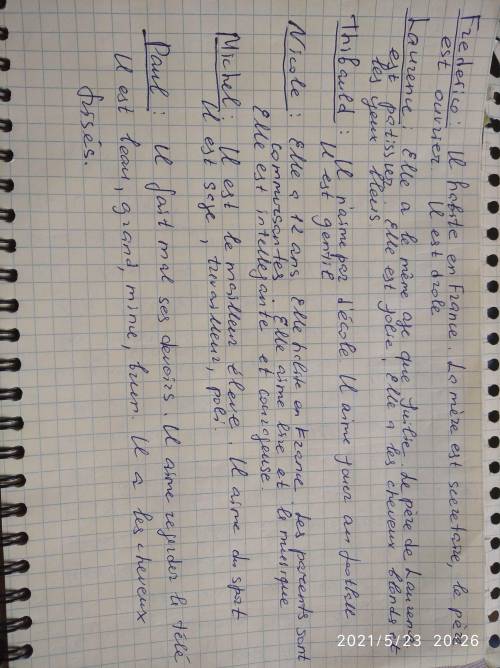 Frederico : Il habite en France. La mère est secretaire, le père
est ouvrier. Il est drole
Laurence : Elle a le même age que Julie. Le père de Laurence
est patissier. Elle est jolie, Elle a les cheveux blonds et
les yeux bleus
Thibauld : Il n'aime pas l'école Il aime jouer au football
Il est gentil
Nicole : Elle a 12 ans Elle habite en France. Les parents sont
commersantes. Elle aime lire et la musique
Elle est intellegante et courageuse.
Michel : Il est le meilleur élève. Il aime du sport
Il est sage, travailleur, poli.
Paul : Il fait mal ses devoirs. Il aime regarder la télé
Il est beau, grand, mince, brun. Il a les cheveux
frisés.
2021/5/23 20:26